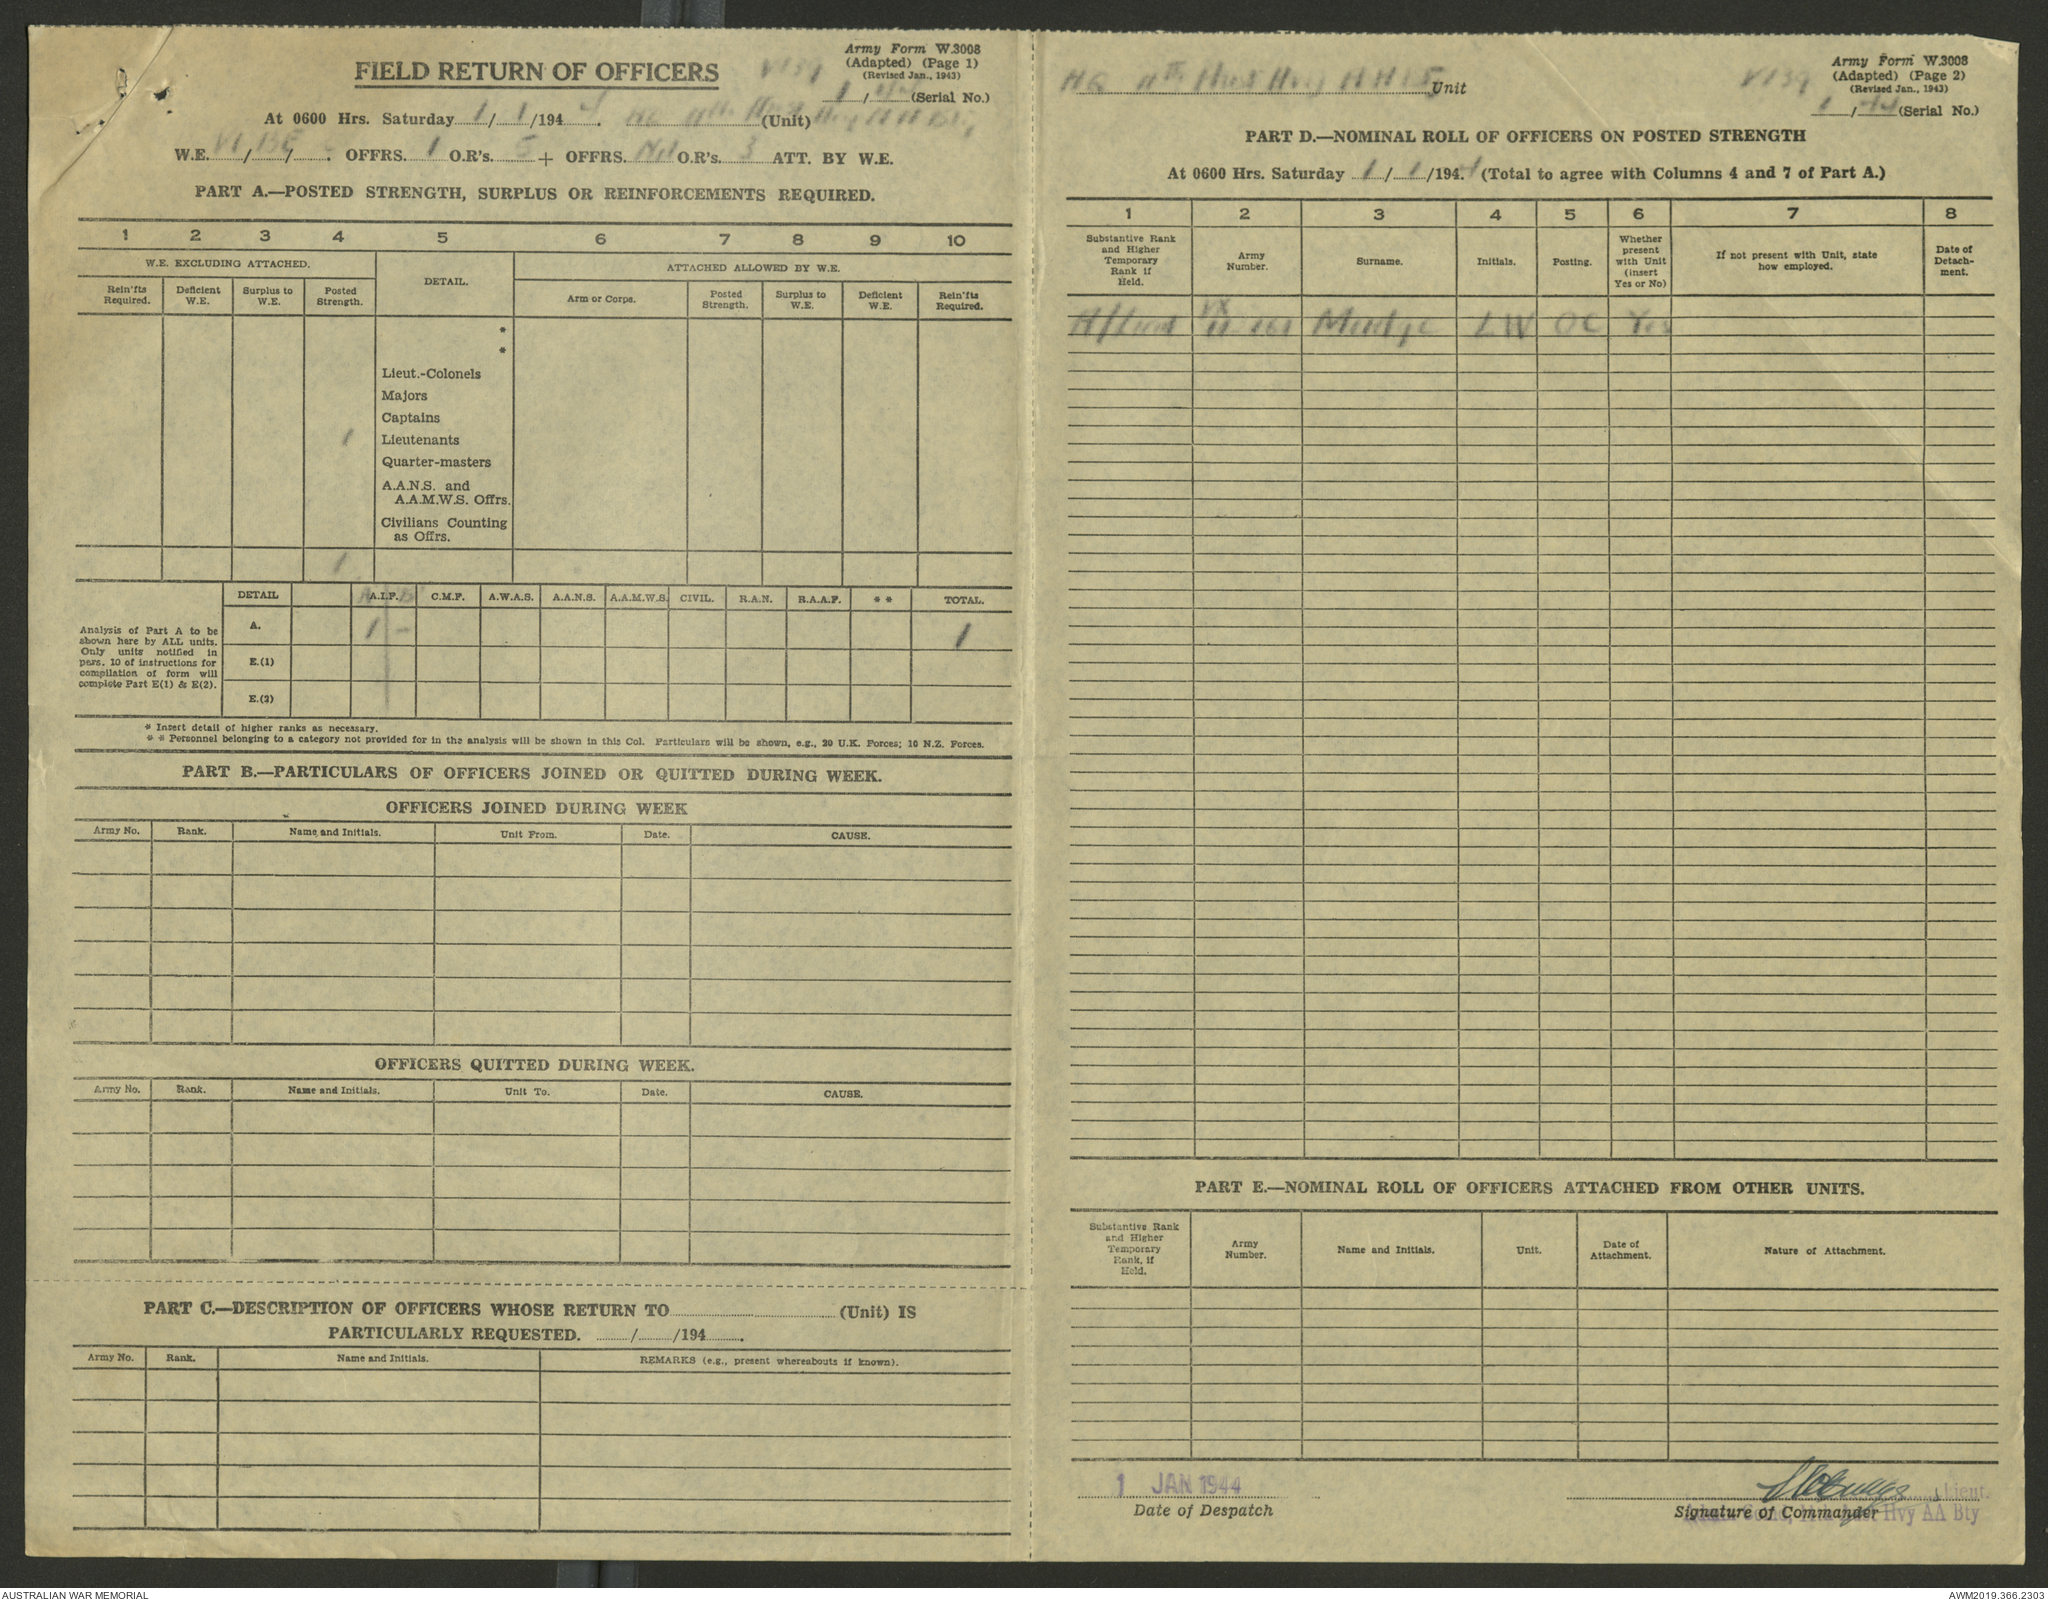 Army Form W.3008
(Adapted) (Page 1)
(Revised Jan., 1943)
FIELD RETURN OF OFFICERS
V139
1/44 (Serial No.)
At 0600 Hrs. Saturday 1/1/1944. HQ 11th Aust (Unit) Hvy AA Bty
W.E. VI/13E/. OFFRS. 1 O.R's. 5 + OFFRS. Nil O.R's. 3 ATT. BY W.E.
PART A.—POSTED STRENGTH, SURPLUS OR REINFORCEMENTS REQUIRED.
1 2 3 4 5 6 7 8 9 10
W.E. EXCLUDING ATTACHED. DETAIL. ATTACHED ALLOWED BY W.E.
Rein'fts Required. Deficient W.E. Surplus to W.E. Posted Strength. Arm or Corps. Posted Strength. Surplus to W.E. Deficient W.E. Rein'fts Required.
*
*
Lieut.-Colonels
Majors
Captains
1 Lieutenants
Quarter-masters
A.A.N.S. and
A.A.M.W.S. Offrs.
Civilians Counting
as Offrs.
1
DETAIL A.I.F. C.M.F. A.W.A.S. A.A.N.S. A.A.M.W.S. CIVIL. R.A.N. R.A.A.F. * * TOTAL.
Analysis of Part A to be
shown here by ALL units.
Only units notified in
para. 10 of instructions for
compilation of form will
complete Part E(1) & E(2).
A. 1 - 1
E.(1)
E.(2)
* Insert detail of higher ranks as necessary.
* * Personnel belonging to a category not provided for in the analysis will be shown in this Col. Particulars will be shown, e.g., 20 U.K. Forces; 10 N.Z. Forces.
PART B.—PARTICULARS OF OFFICERS JOINED OR QUITTED DURING WEEK.
OFFICERS JOINED DURING WEEK
Army No. Rank. Name and Initials. Unit From. Date. CAUSE.
OFFICERS QUITTED DURING WEEK.
Army No. Rank. Name and Initials. Unit To. Date. CAUSE.
PART C.—DESCRIPTION OF OFFICERS WHOSE RETURN TO (Unit) IS
PARTICULARLY REQUESTED. / /194 .
Army No. Rank. Name and Initials. REMARKS (e.g., present whereabouts if known).
Army Form W.3008
(Adapted) (Page 2)
(Revised Jan., 1943)
HQ 11th Aust Hvy AA Bty Unit
V139
1/44 (Serial No.)
PART D.—NOMINAL ROLL OF OFFICERS ON POSTED STRENGTH
At 0600 Hrs. Saturday 1/1/1944 (Total to agree with Columns 4 and 7 of Part A.)
1 2 3 4 5 6 7 8
Substantive Rank and Higher Temporary Rank if Held. Army Number. Surname. Initials. Posting. Whether present with Unit (insert Yes or No) If not present with Unit, state how employed. Date of Detach-ment.
VX
Mudge LW OC Yes
PART E.—NOMINAL ROLL OF OFFICERS ATTACHED FROM OTHER UNITS.
Substantive Rank and Higher Temporary Rank, if Held. Army Number. Name and Initials. Unit. Date of Attachment. Nature of Attachment.
1 JAN 1944
Date of Despatch
Lieut.
Signature of Commander
Hvy AA Bty
AUSTRALIAN WAR MEMORIAL
AWM2019.366.2303